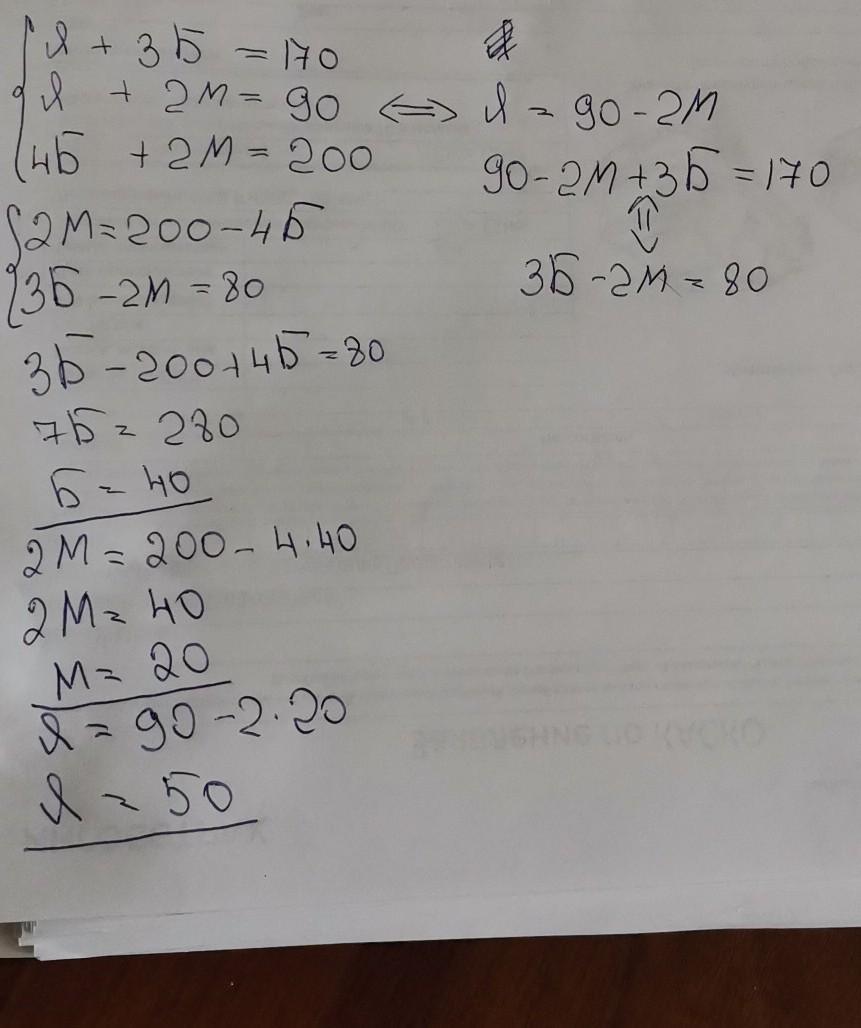 Я + 3Б = 170
Я + 2М = 90 <=> Я = 90 - 2М
4Б + 2М = 200
90 - 2М + 3Б = 170
3Б - 2М = 80
2М = 200 - 4Б
3Б - 2М = 80
3Б - 200 + 4Б = 80
7Б = 280
Б = 40
2М = 200 - 4·40
2М = 40
М = 20
Я = 90 - 2·20
Я = 50